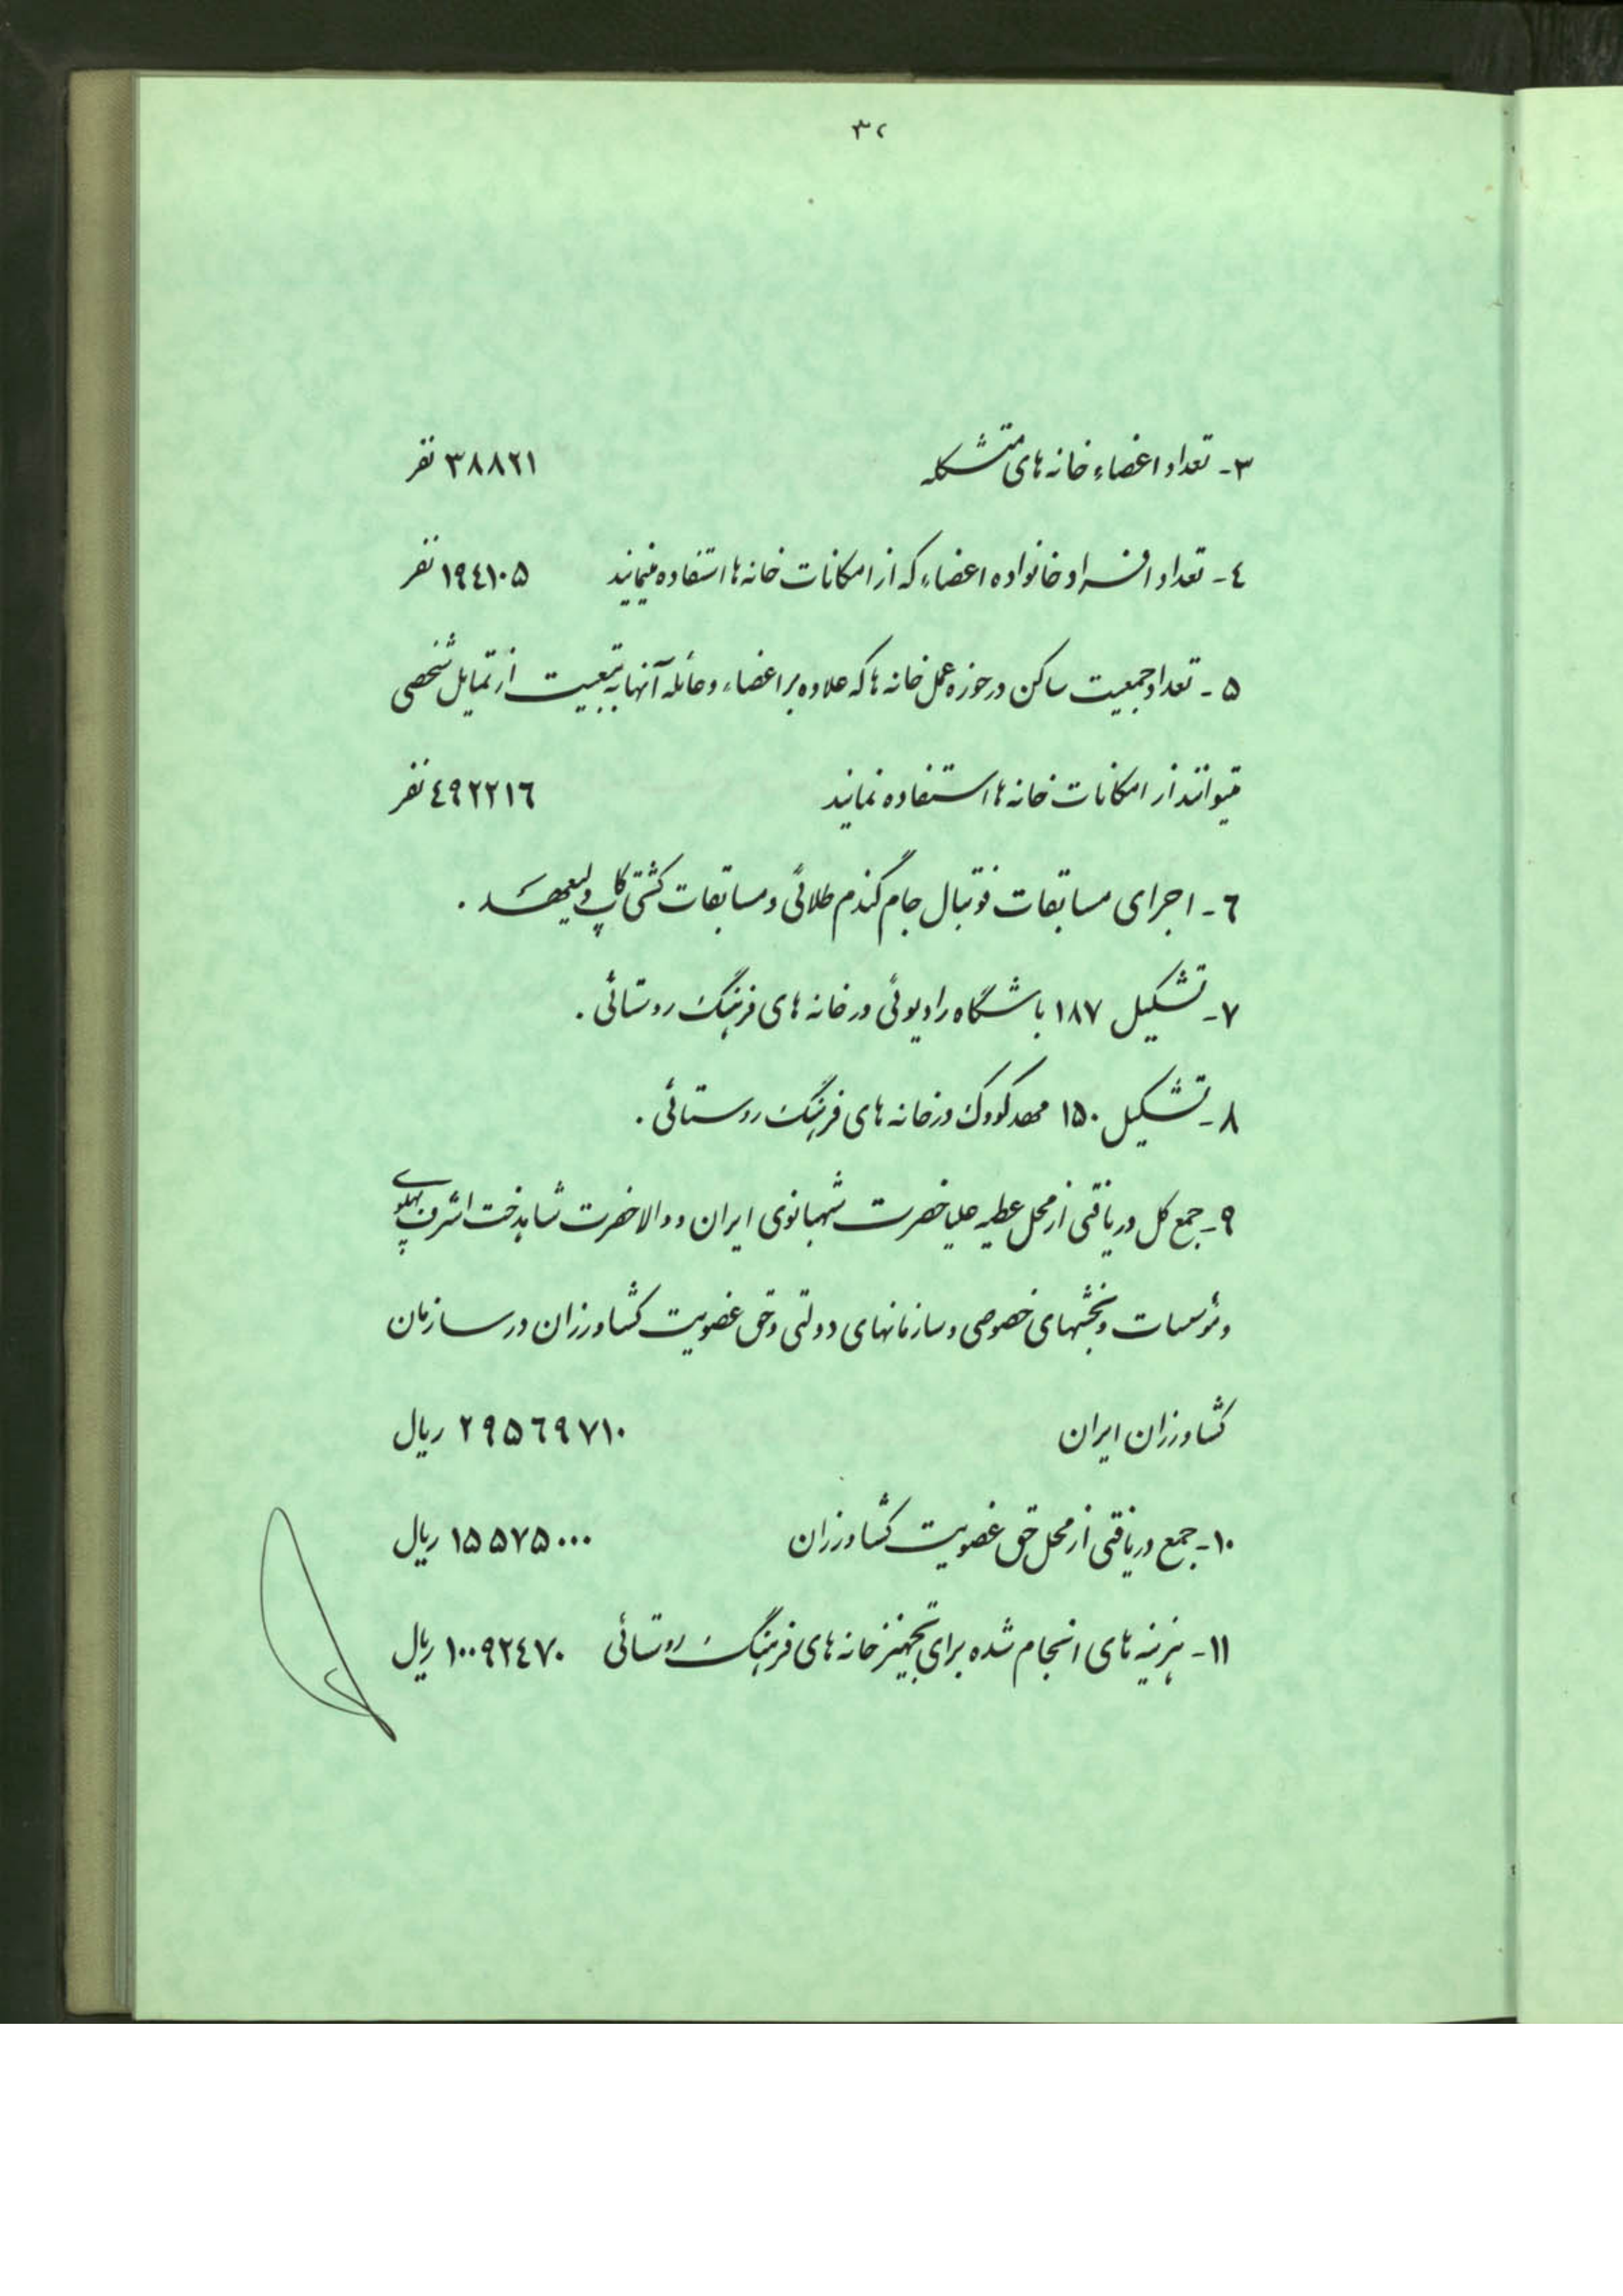 ۳۲
۳- تعداد اعضاء خانه های متشکله ۳۸۸۲۱ نفر
٤- تعداد افراد خانواده اعضاء که از امکانات خانه ها استفاده مینمایند ۱۹٤۱۰۵ نفر
۵- تعداد جمعیت ساکن در حوزه عمل خانه ها که علاوه بر اعضاء و عائله آنها به تبعیت از تمایل شخصی
میتوانند از امکانات خانه ها استفاده نمایند ٤۹۲۲۱٦ نفر
٦- اجرای مسابقات فوتبال جام گندم طلائی و مسابقات کشتی کاپ ولیعهد .
۷- تشکیل ۱۸۷ باشگاه رادیوئی در خانه های فرهنگ روستائی .
۸- تشکیل ۱۵۰ مهد کودک در خانه های فرهنگ روستائی .
۹- جمع کل دریافتی از محل عطیه علیاحضرت شهبانوی ایران و والاحضرت شاهدخت اشرف پهلوی
و مؤسسات و بخشهای خصوصی و سازمانهای دولتی و حق عضویت کشاورزان در سازمان
کشاورزان ایران ۲۹۵٦۹۷۱۰ ریال
۱۰- جمع دریافتی از محل حق عضویت کشاورزان ۱۵۵۷۵۰۰۰ ریال
۱۱- هزینه های انجام شده برای تجهیز خانه های فرهنگ روستائی ۱۰۰۹۲٤۷۰ ریال